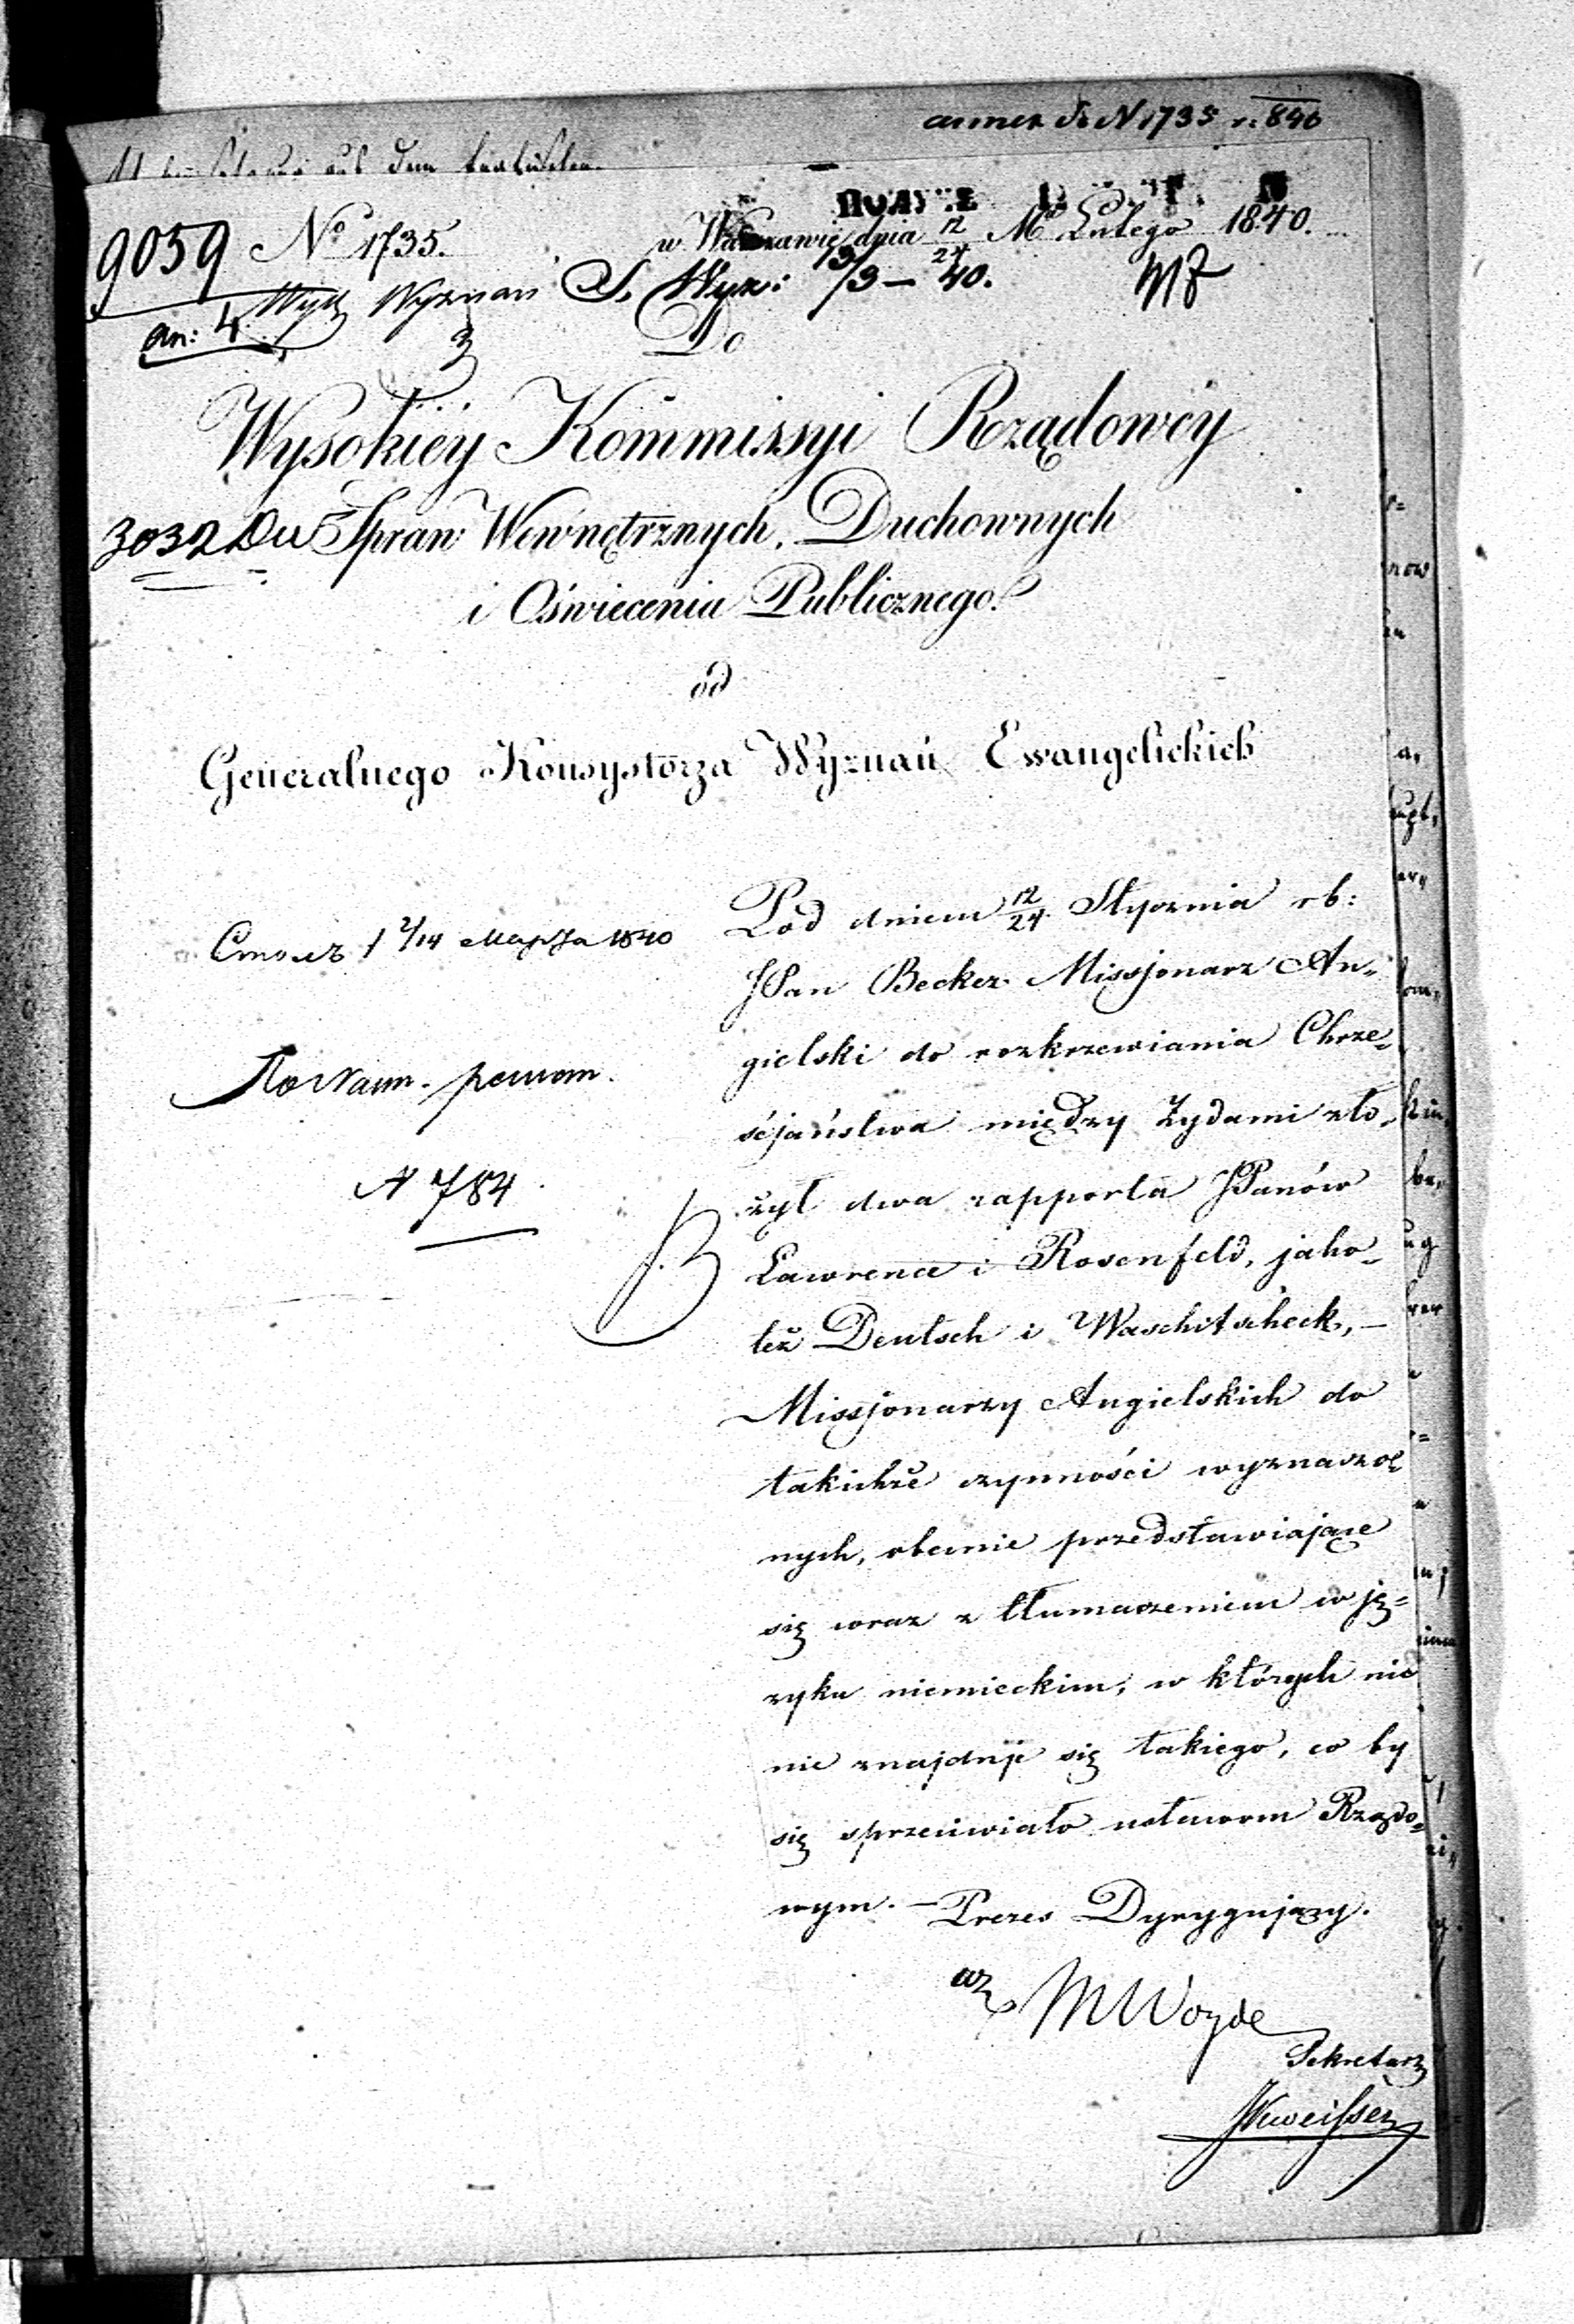 annex do N 1735 r. 840
aus dem
9059 No 1735.
w Warszawie dnia 12/24 M. Lutego 1840.
Wydz. Wyznań S. Wyz: 3/3 – 40.
an: 4.
Do
Wysokiéy Kommissyi Rządowéy
3032 Du Spraw Wewnętrznych, Duchownych
i Oświecenia Publicznego.
od
Generalnego Konsystorza Wyznań Ewangelickich
2/14 Марта 1840
N 784
Pod dniem 12/24 Stycznia rb:
JPan Becker Missjonarz An=
gielski do rozkrzewiania Chrze=
ścjaństwa między Żydami zło=
żył dwa rapporta JPanów
Lawrence i Rosenfeld, jako=
też Deutsch i Waschitscheck, –
Missjonarzy Angielskich do
takichże czynności wyznaczo=
nych, obecnie przedstawiające
się wraz z tłumaczeniem w ję=
zyku niemieckim, w których nic
nie znajduje się takiego, co by
się sprzeciwiało ustawom Rządo=
wym. – Prezes Dyrygujący.
wz M Woyde
Sekretarz